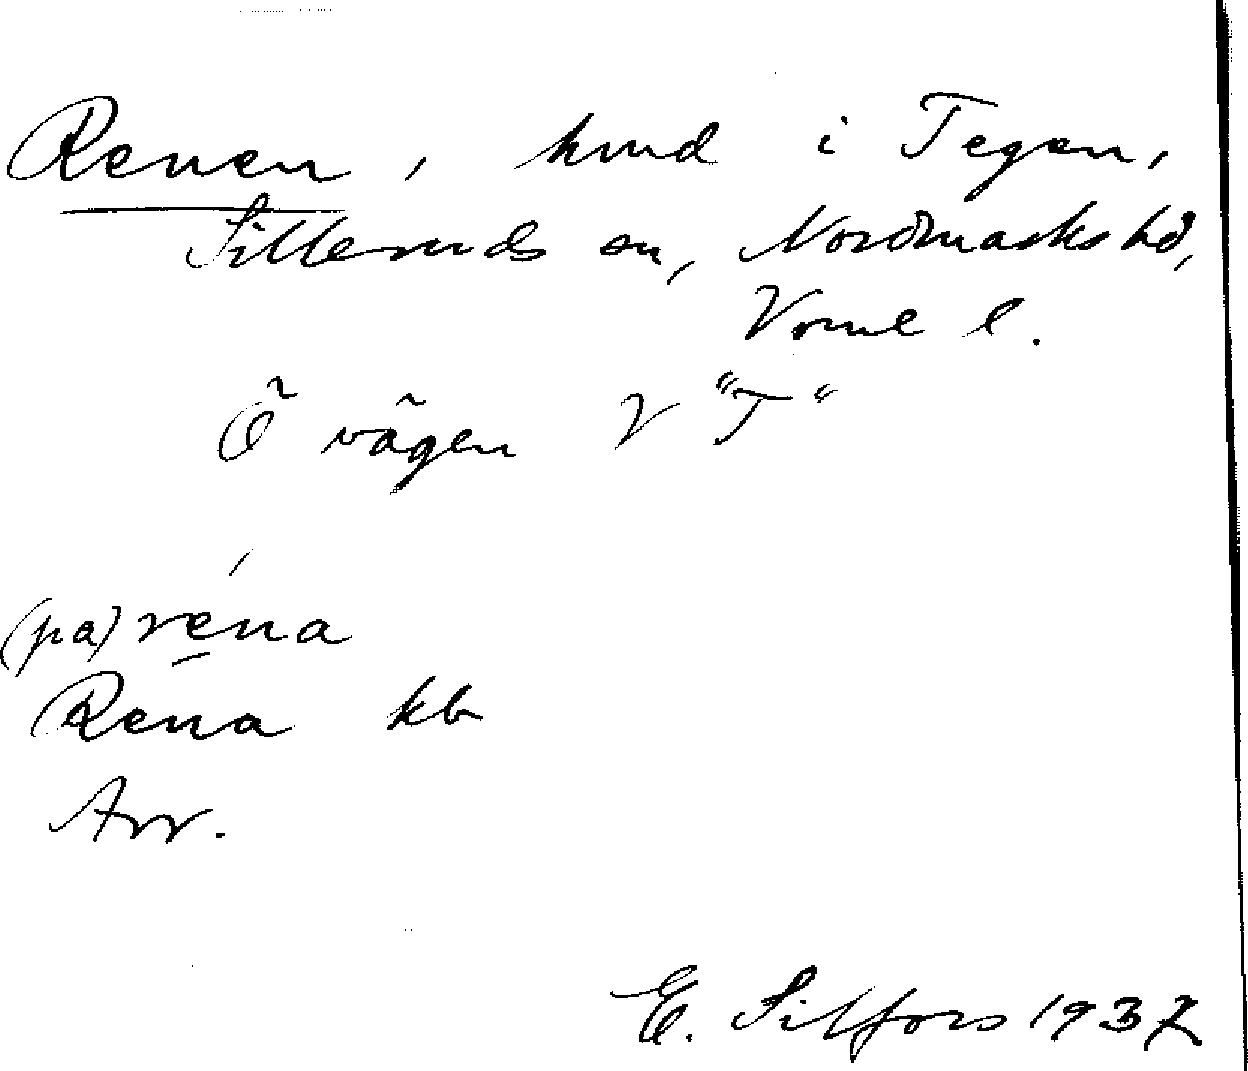 Renen, hmd i Tegen,
Silleruds sn, Nordmarks hd,
Verml l.
Ö vägen V "T"
(pa) rena
Rena kb
Arr.
E. Silfors 1937